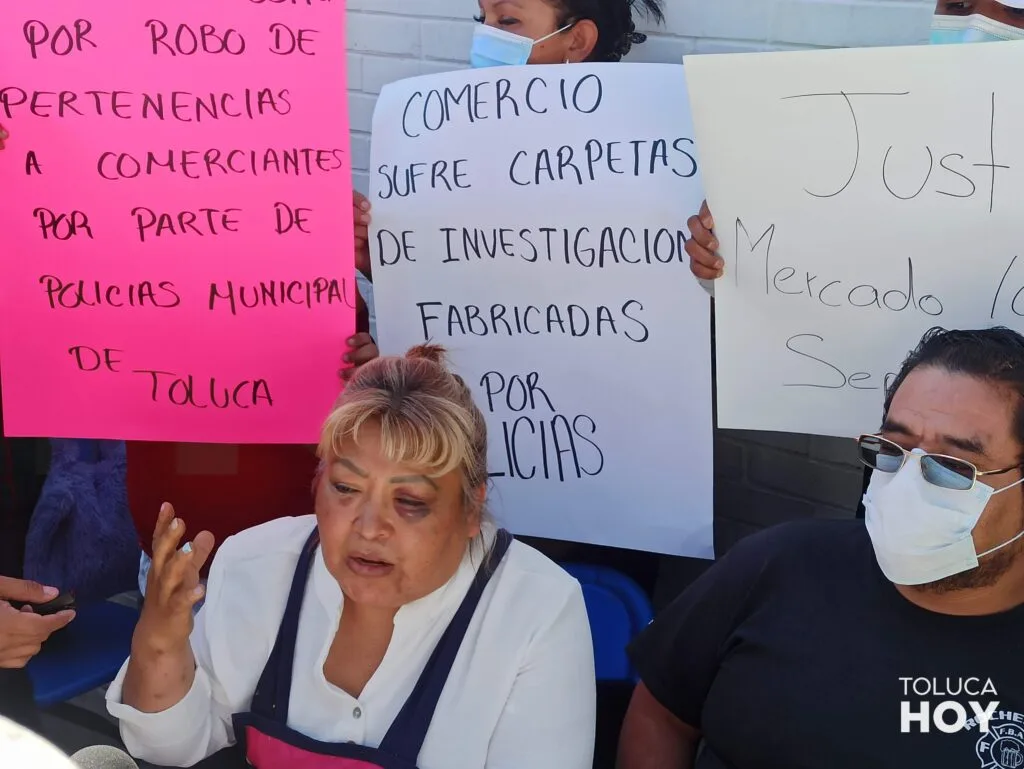 POR ROBO DE
PERTENENCIAS
A COMERCIANTES
POR PARTE DE
POLICIAS MUNICIPAL
DE TOLUCA
COMERCIO
SUFRE CARPETAS
DE INVESTIGACION
FABRICADAS
POR
LICIAS
Just
Mercado
Sep
TOLUCA
HOY
F.B.A